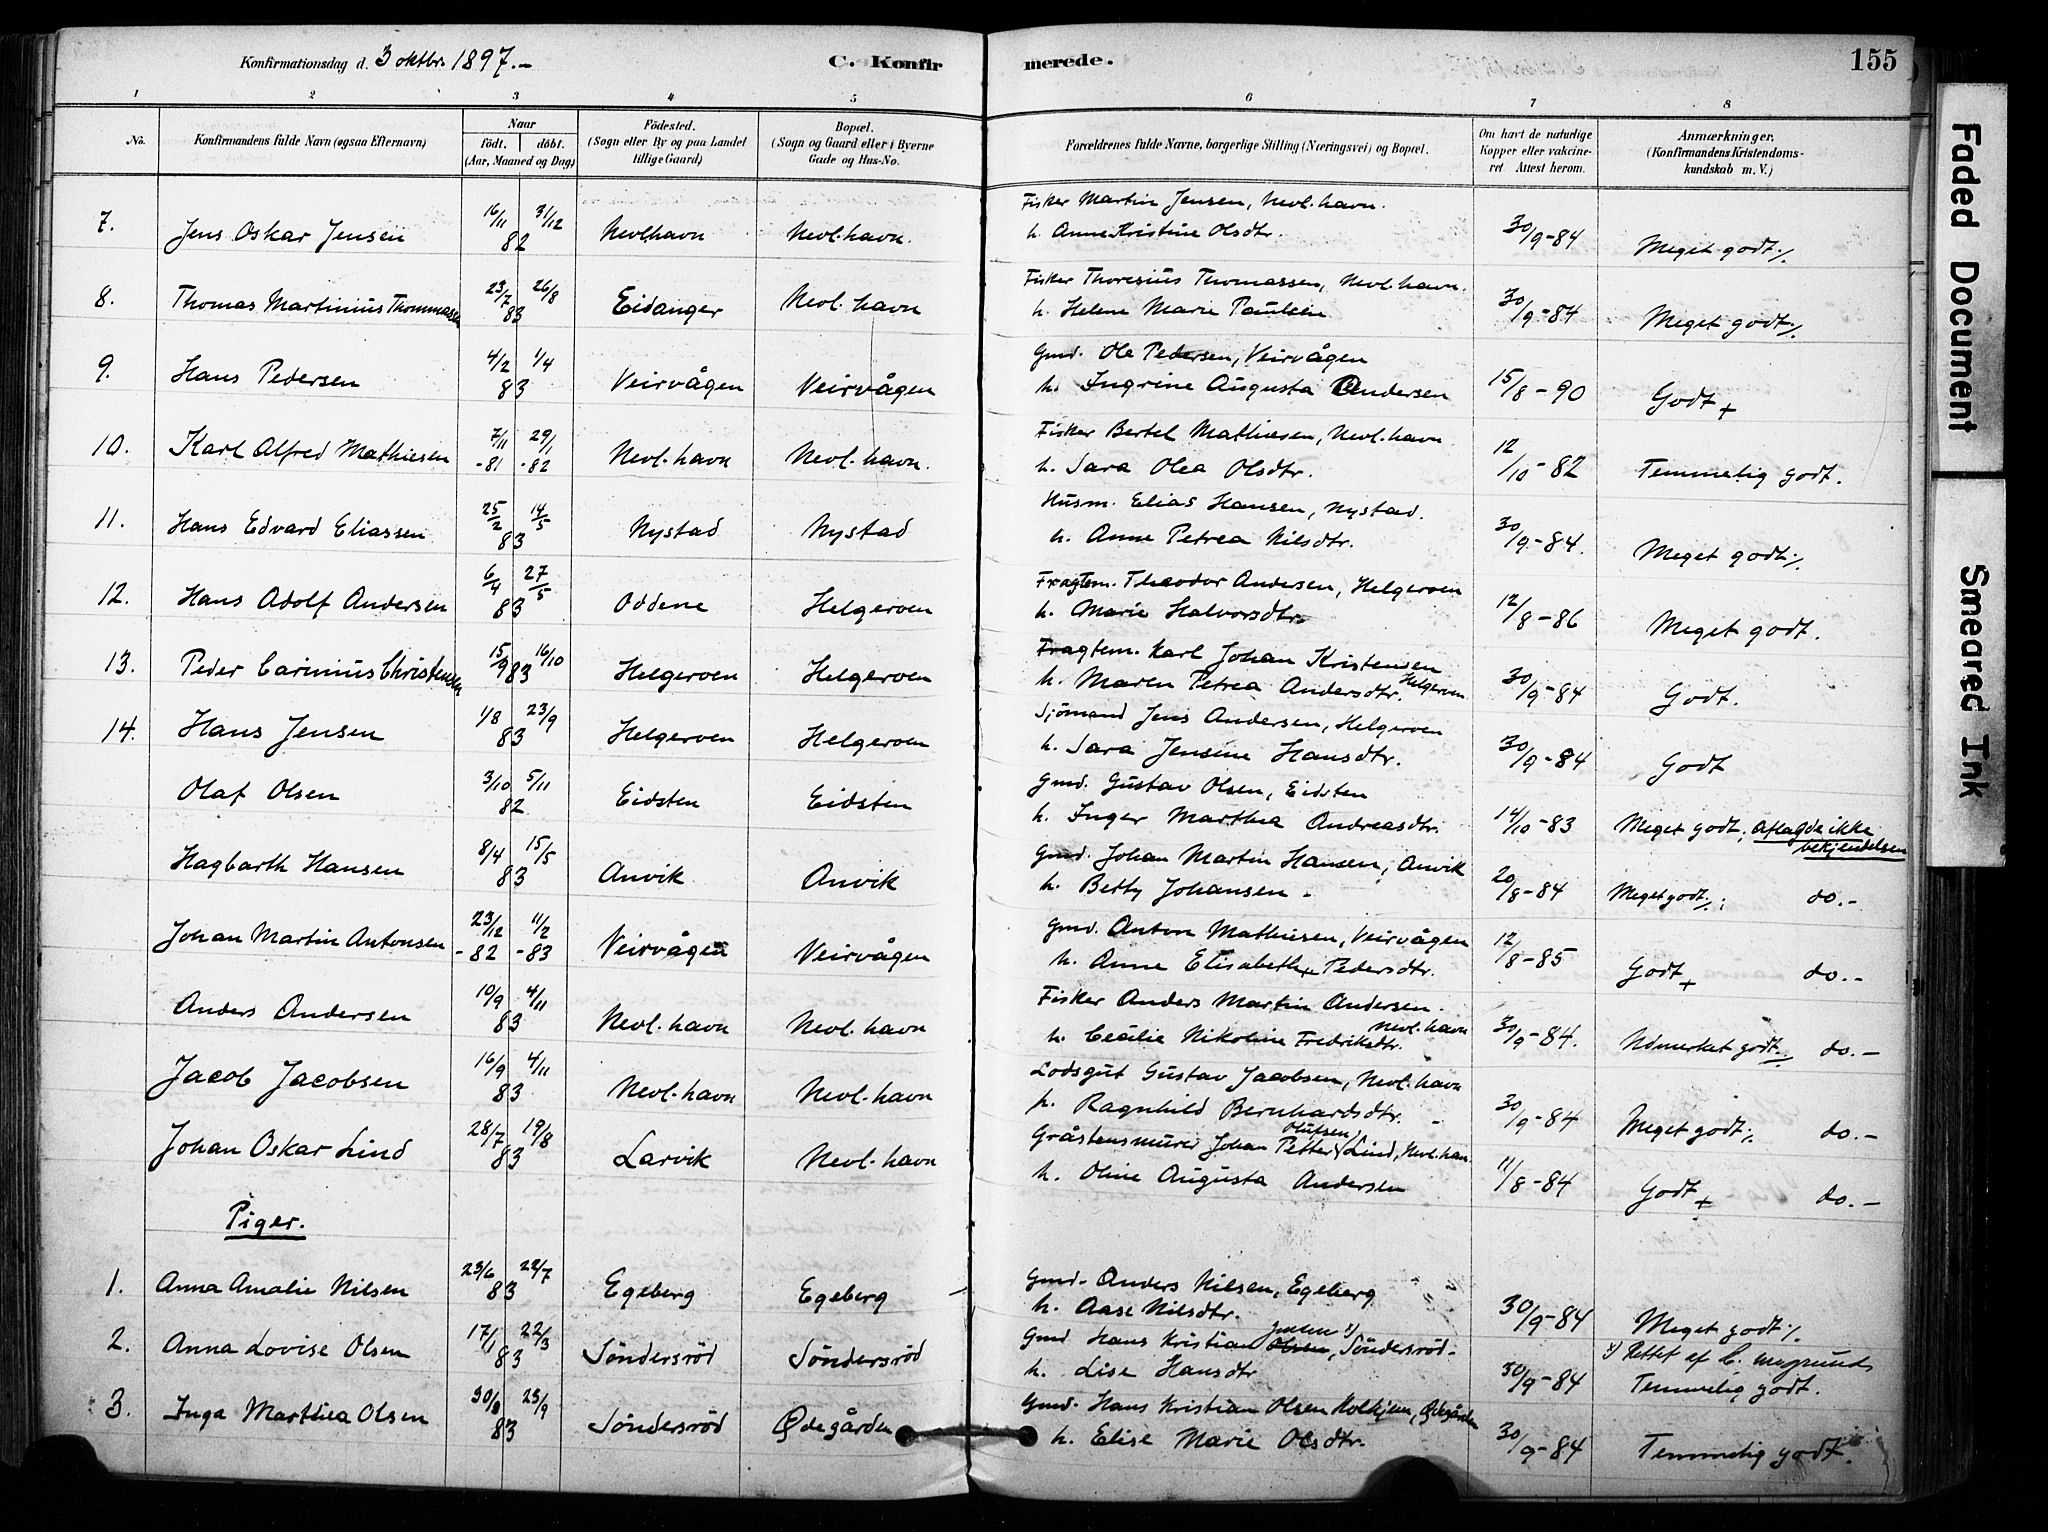 Konfirmationsdag d. 3 oktbr. 1897.-
C. Konfir merede.
155
1 2 3 4 5 6 7 8
No.
Konfirmandens fulde Navn (ogsaa Efternavn)
Naar
födt. döbt.
(Aar, Maaned og Dag)
Födested.
(Sogn eller By og paa Landet tillige Gaard)
Bopæl.
(Sogn og Gaard eller i Byerne Gade og Hus-No.
Forældrenes fulde Navne, borgerlige Stilling (Næringsvei) og Bopæl.
Om havt de naturlige Kopper eller vakcineret Attest herom.
Anmærkninger.
(Konfirmandens Kristendomskundskab m. V.)
7. Jens Oskar Jensen 16/11 31/12 82 Nevl.havn Nevl.havn. Fisker Martin Jensen, Nevl.havn.
h. Anne Kristine Olsdtr. 30/9-84 Meget godt./.
8. Thomas Martinius Thommassen 23/7 26/8 83 Eidanger Nevl.havn Fisker Thoresius Thomassen, Nevl.havn.
h. Helene Marie Paulsen 30/9-84 Meget godt./.
9. Hans Pedersen 4/2 1/4 83 Veirvågen Veirvågen Gmd. Ole Pedersen, Veirvågen
h. Ingrine Augusta Andersen 15/8-90 Godt +
10. Karl Alfred Mathiesen 7/11 -81 29/1 -82 Nevl.havn Nevl.havn. Fisker Bertel Mathiesen, Nevl.havn
h. Sara Olea Olsdtr. 12/10-82 Temmelig godt.
11. Hans Edvard Eliassen 25/2 14/5 83 Nystad Nystad Husm. Elias Hansen, Nystad.
h. Anne Petrea Nilsdtr. 30/9-84. Meget godt./.
12. Hans Adolf Andersen 6/4 27/5 83 Oddene Helgeroen Fragtem. Theodor Andersen, Helgeroen
h. Marie Halvorsdtr. 12/8-86 Meget godt.
13. Peder Carinius Christensen 15/9 16/10 83 Helgeroen Helgeroen Fragtem. Karl Johan Kristensen
h. Maren Petrea Andersdtr. Helgeroen 30/9-84 Godt.
14. Hans Jensen 1/8 23/9 83 Helgeroen Helgeroen Sjömand Jens Andersen, Helgeroen
h. Sara Jensine Hansdtr. 30/9-84 Godt
Olaf Olsen 3/10 5/11 82 Eidsten Eidsten Gmd. Gustav Olsen, Eidsten
h. Inger Marthea Andreasdtr. 14/10-83 Meget godt; aflagde ikke bekjendelsen
Hagbarth Hansen 8/4 15/5 83 Anvik Anvik Gmd. Johan Martin Hansen, Anvik
h. Betty Johansen - 20/8-84 Meget godt./.; do.-
Johan Martin Antonsen 23/12 -82 11/2 -83 Veirvågen Veirvågen Gmd. Anton Mathiesen, Veirvågen
h. Anne Elisabeth Pedersdtr. 12/8-85 Godt + do.-
Anders Andersen 10/9 4/11 83 Nevl.havn Nevl.havn Fisker Anders Martin Andersen.
h. Cecilie Nikoline Fredriksdtr. Nevl.havn 30/9-84. Udmerket godt./. do.-
Jacob Jacobsen 16/9 4/11 83 Nevl.havn Nevl.havn Lodsgut Gustav Jacobsen, Nevl.havn
h. Ragnhild Bernhardsdtr. - 30/9-84 Meget godt./. do.-
Johan Oskar Lind 28/7 19/8 83 Larvik Nevl.havn Gråstensmurer Johan Petter Olufsen Lind, Nevl.han.
h. Oline Augusta Andersen 11/8-84 Godt + do.-
Piger.
1. Anna Amalie Nilsen 23/6 22/7 83 Egeberg Egeberg Gmd. Anders Nilsen, Egeberg
h. Aase Nilsdtr. 30/9-84 Meget godt./.
2. Anna Lovise Olsen 17/1 22/3 83 Söndersröd Söndersröd Gmd Hans Kristian Olsen Jensen 1), Söndersröd.
h. Lise Hansdtr 30/9-84 1) Rettet af C. Magnus Temmelig godt.
3. Inga Marthea Olsen 30/8 23/9 83 Söndersröd Ødegården Gmd. Hans Kristian Olsen Holkjen, Ødegården
h. Elise Marie Olsdtr. 30/9-84 Temmelig godt.
Faded Document
Smeared Ink